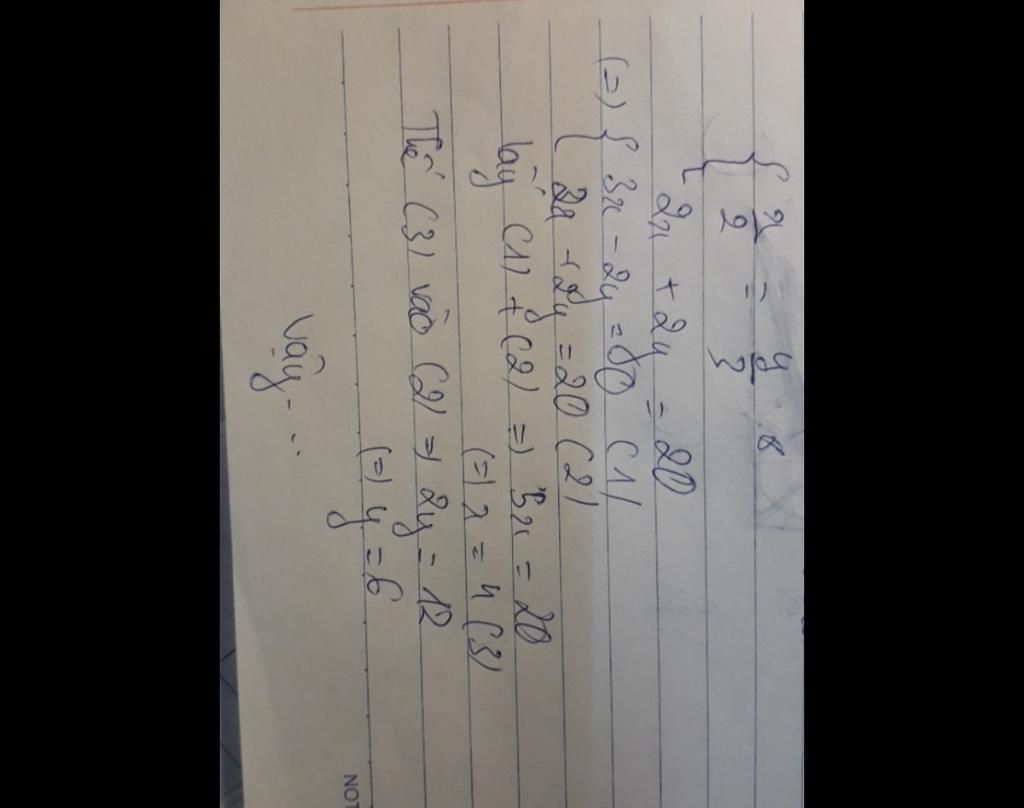 { x/2 = y/3
2x + 2y = 20
(=) { 3x - 2y = 0 (1)
2x + 2y = 20 (2)
lấy (1) + (2) =) 5x = 20
(=) x = 4 (3)
Thế (3) vào (2) =) 2y = 12
(=) y = 6
Vậy - ..
NOT